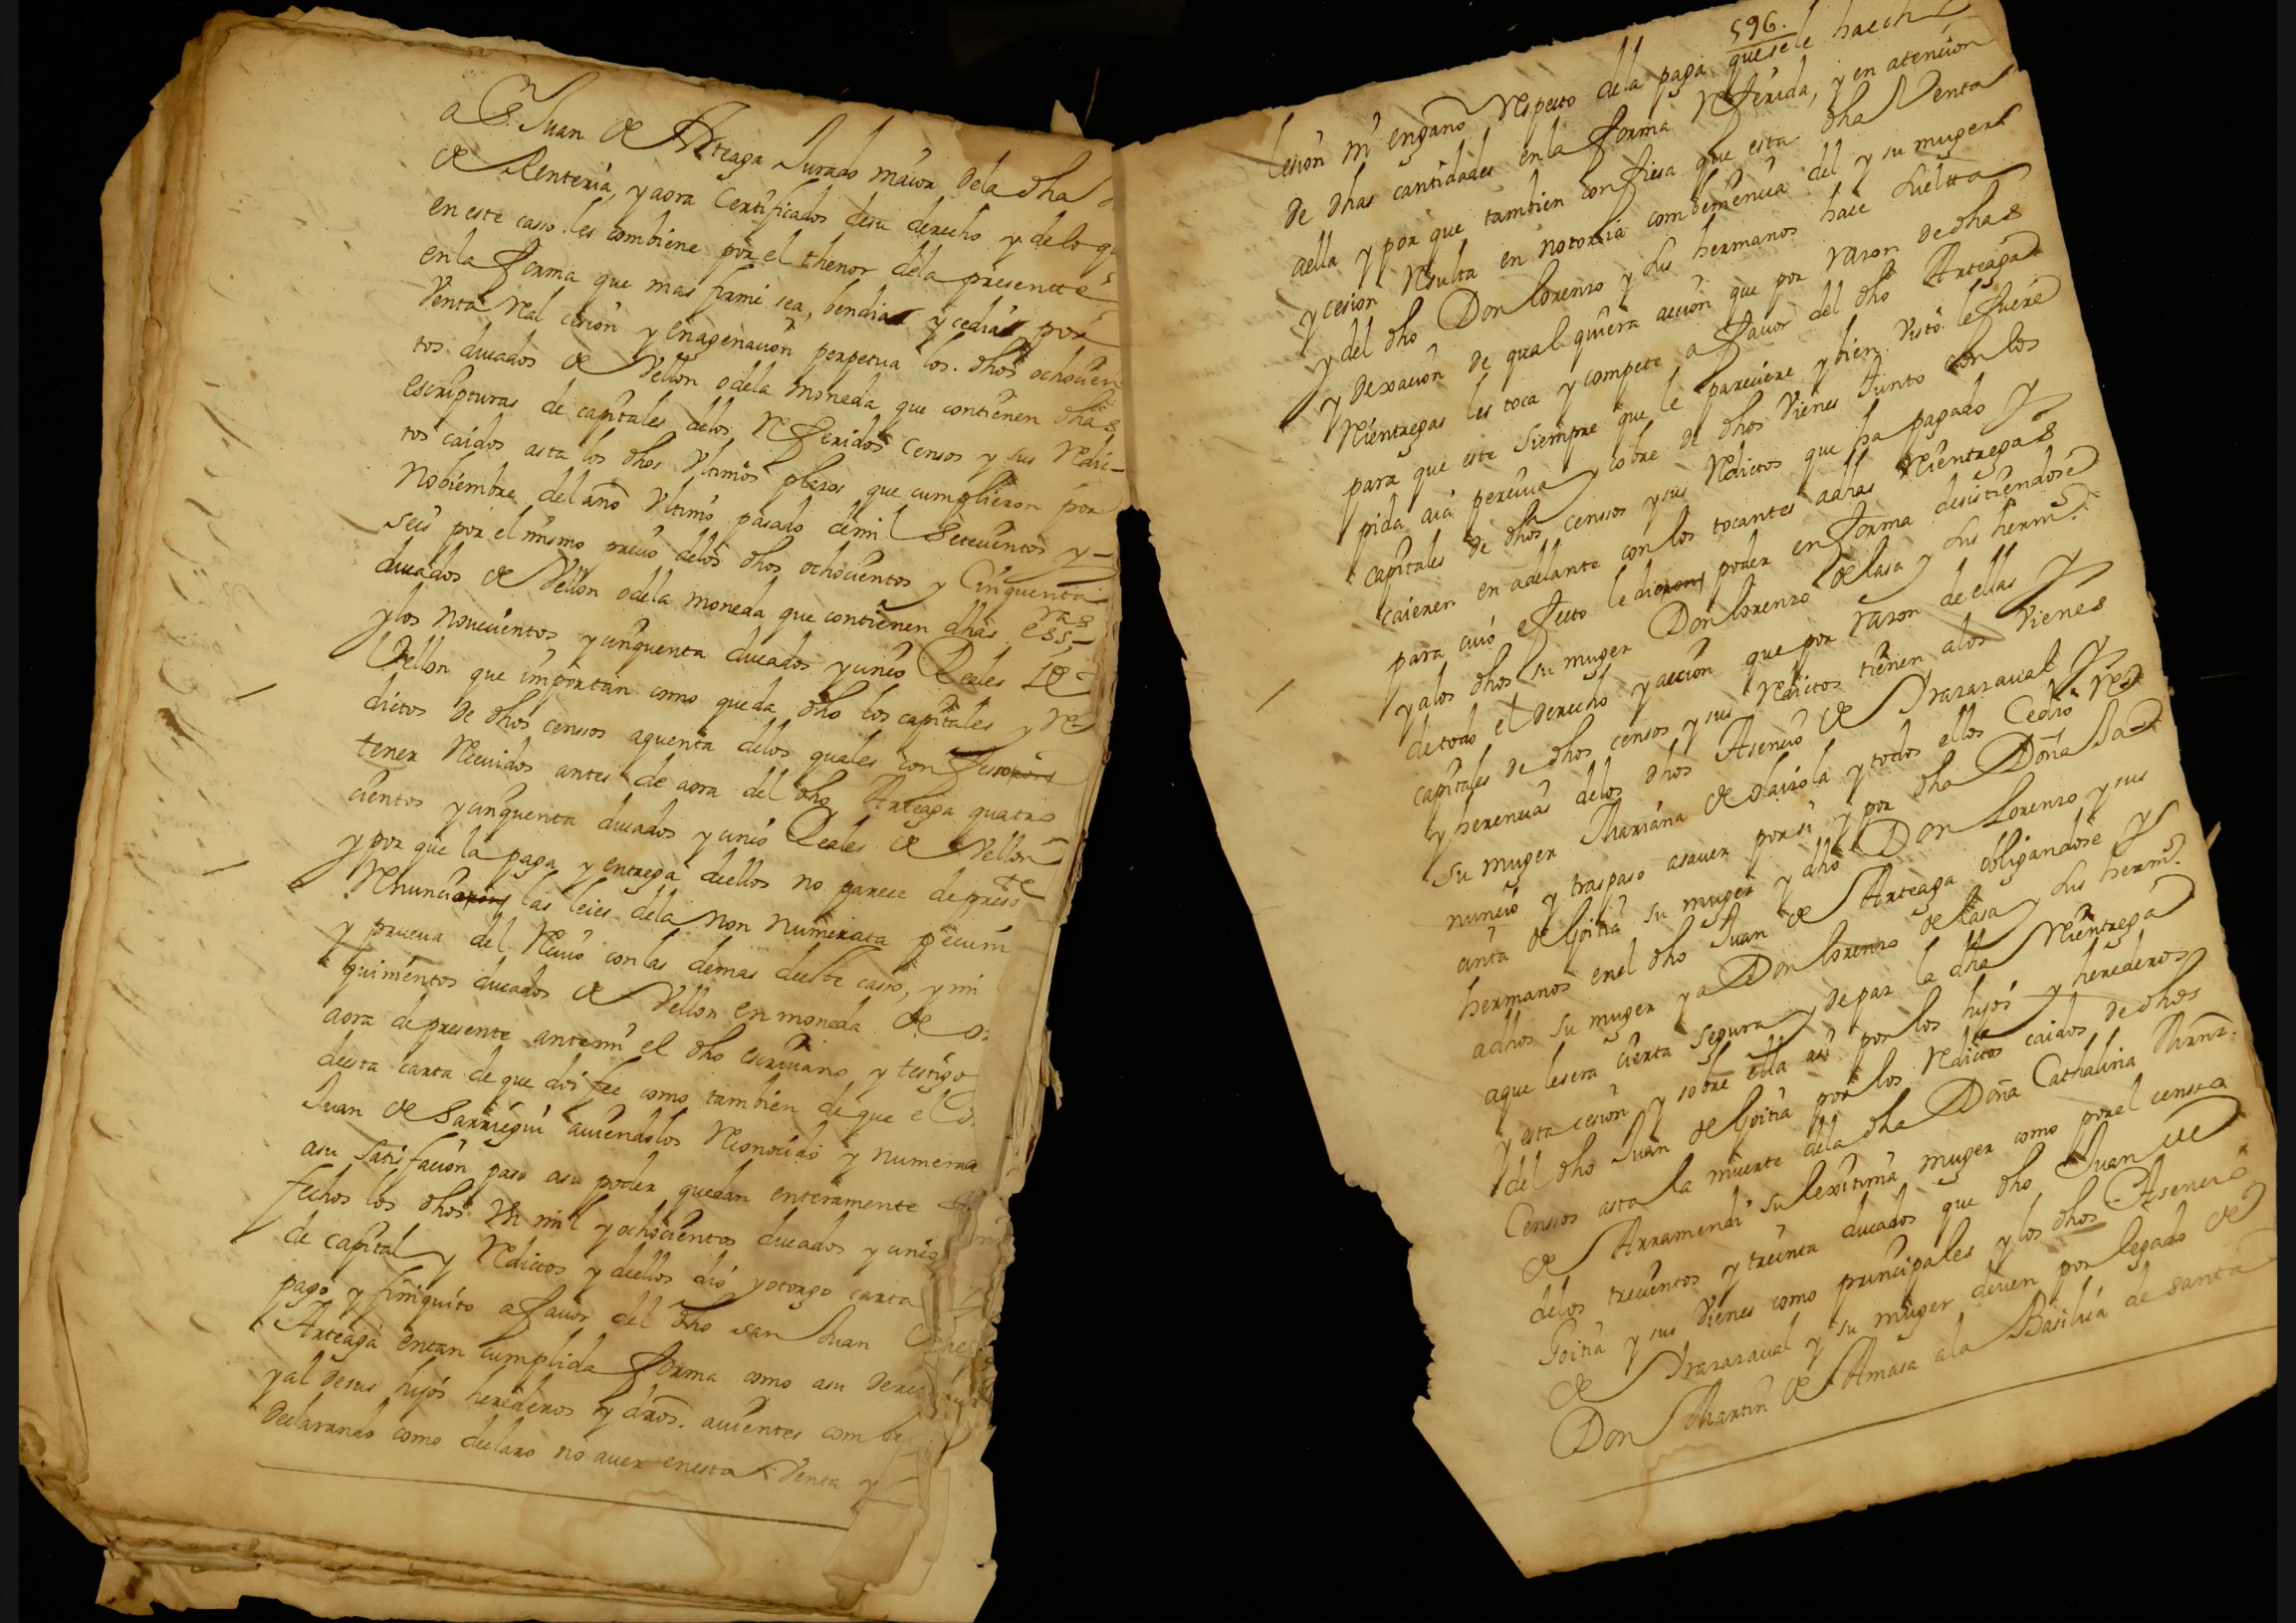 a S. Juan de Arteaga Jurado maior dela dha
de Renteria, y aora Certificados desu derecho y delo q
en este caso les combiene por el thenor dela presentte
enla forma que mas firme sea, bendia y cedia por
Venta Real cesion y enagenacion perpetua los dhos ochocien
tos ducados de Vellon o dela moneda que contienen dhas
escripturas de capitales delos Referidos Censos y sus Redi-
tos caidos asta los dhos Vltimos plazos que cumplieron por
Nobiembre del año Vltimo pasado de mil Setecientos y
seis por el mismo precio delos dhos ochocientos y Cinquenta
ducados de Vellon o dela moneda que contienen dhas essras
y los novecientos y cinquenta ducados y cinco Reales de
Vellon que importan como queda dho los capitales y Re
ditos de dhos censsos aquenta delos quales confeso
tener Recividos antes de aora del dho Arteaga quatro
cientos y cinquenta ducados y cinco Reales de Vellon
y por que la paga y entrega dellos no parece de presste
Renuncia las leies dela non numerata pecuni
y prueva del Recivo con las demas deeste caso, y mi
quinientos ducados de Vellon en moneda de
aora de presente ante mi el dho escrivano y testigo
desta carta de que doi fee como tambien de que el
Juan de Sarriegui aviendolos Reconocido y numera
asu satisfacion paso asu poder quedan enteramente
fechos los dhos Vn mil y ochocientos ducados y cinco
de capital y Reditos y dellos dio y otorgo carta
pago y finiquito a favor del dho san Juan de
Arteaga entan cumplida forma como asu dere
y al de sus hijos herederos y dros. avientes combe
Declarando como declaro no aver enesta Venta y
596.
lesion ni engaño Respecto dela paga quesele hace
de dhas cantidades enla forma Referida, y en atencion
aella y por que tambien confiesa que esta dha Venta
y cesion Resulta en notoria combeniencia del y su muger
y del dho Don Lorenzo y sus hermanos hace suelta
y dexacion de qual quiera accion que por razon de dhas
Reintregas les toca y compete a favor del dho Arteaga
para que este siempre que le pareciere y bien Visto le fuere
pida aia perciva y cobre de dhos Vienes Junto con los
capitales de dhos censsos y sus Reditos que ha pagado y
caieren en adelante con los tocantes adhas Reintregas
para cuio efecto le dieron poder en forma desistiendose
y alos dhos su muger Don Lorenzo de lasa y sus herm.
de todo el derecho y accion que por razon de ellas y
capitales de dhos censos y sus Reditos tienen alos Vienes
y herencias delos dhos Asencio de Irazazaval y
su muger Mariana de olaizola y todos ellos Cedio Re
nuncio y traspaso asaver por si y por dha Doña Ja
cinta de Goitia su muger y dho Don Lorenzo y sus
hermanos enel dho Juan de Arteaga obligandose y
adhos su muger y a Don Lorenzo de lasa y sus herm.
a que les era cierta segura y de paz la dha Reintrega
y esta cesion y sobre ella asi por los hijos y herederos
del dho Juan de Goitia por los Reditos caidos de dhos
Censsos asta la muerte dela dha Doña Cathalina Mrnz.
de Arramendi su lexitima muger como por el censsa
delos trecientos y treinta ducados que dho Juan de
Goitia y sus Vienes como principales y los dhos Asencio
de Irazazaval y su muger deven por legado de
Don Martin de Amasa ala Basilica de santa